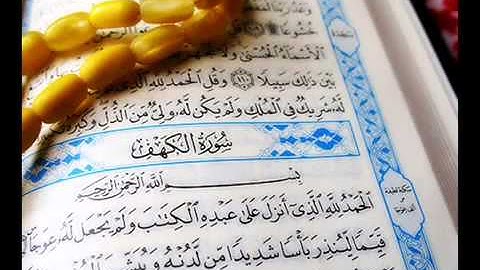 سَجْدَة
خُشُوعًا ۩
الْأَسْمَاءُ الْحُسْنَىٰ وَلَا
بَيْنَ ذَٰلِكَ سَبِيلًا ﴿١١٠﴾ وَقُلِ الْحَمْدُ لِلَّهِ الَّذِي
لَّهُ شَرِيكٌ فِي الْمُلْكِ وَلَمْ يَكُن لَّهُ وَلِيٌّ مِّنَ الذُّلِّ وَكَبِّرْهُ
سُورَةُ الْكَهْفِ
بِسْمِ اللَّهِ الرَّحْمَٰنِ الرَّحِيمِ
الْحَمْدُ لِلَّهِ الَّذِي أَنزَلَ عَلَىٰ عَبْدِهِ الْكِتَابَ وَلَمْ يَجْعَل لَّهُ عِوَجَا
قَيِّمًا لِّيُنذِرَ بَأْسًا شَدِيدًا مِّن لَّدُنْهُ وَيُبَشِّرَ
سكتة لطيفة